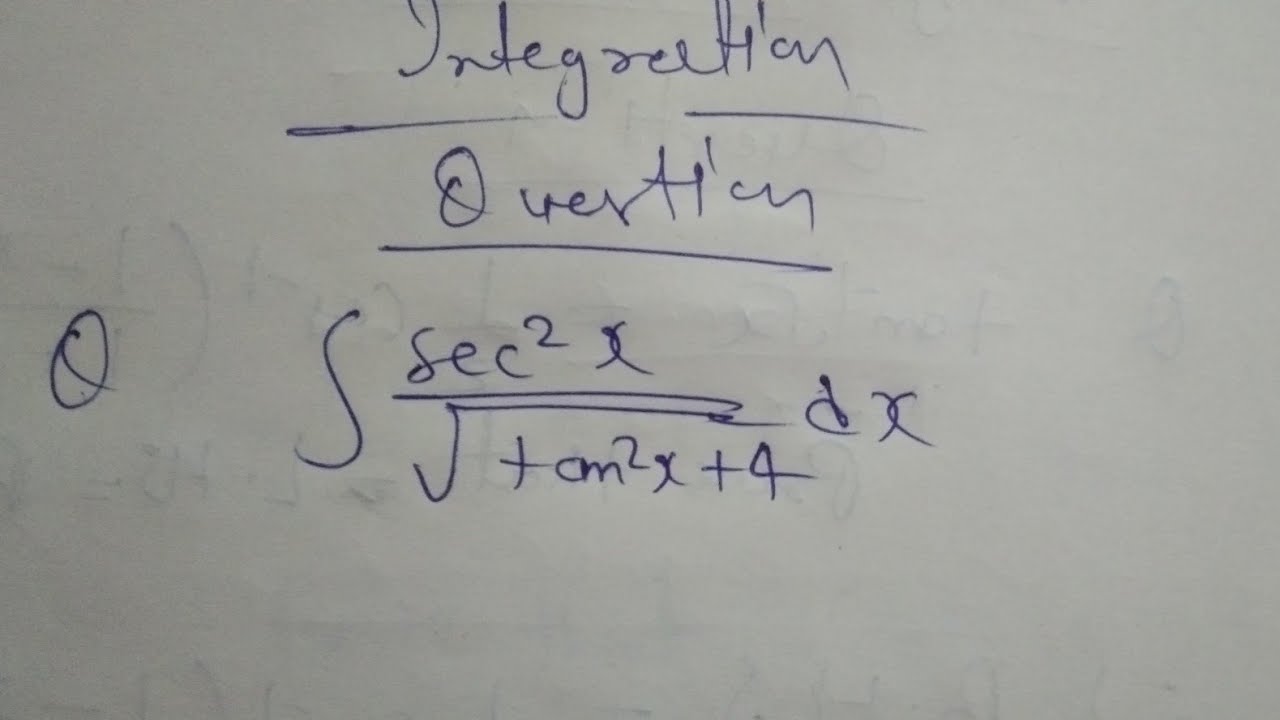 Integration
Question
Q ∫ sec²x / √tan²x+4 dx